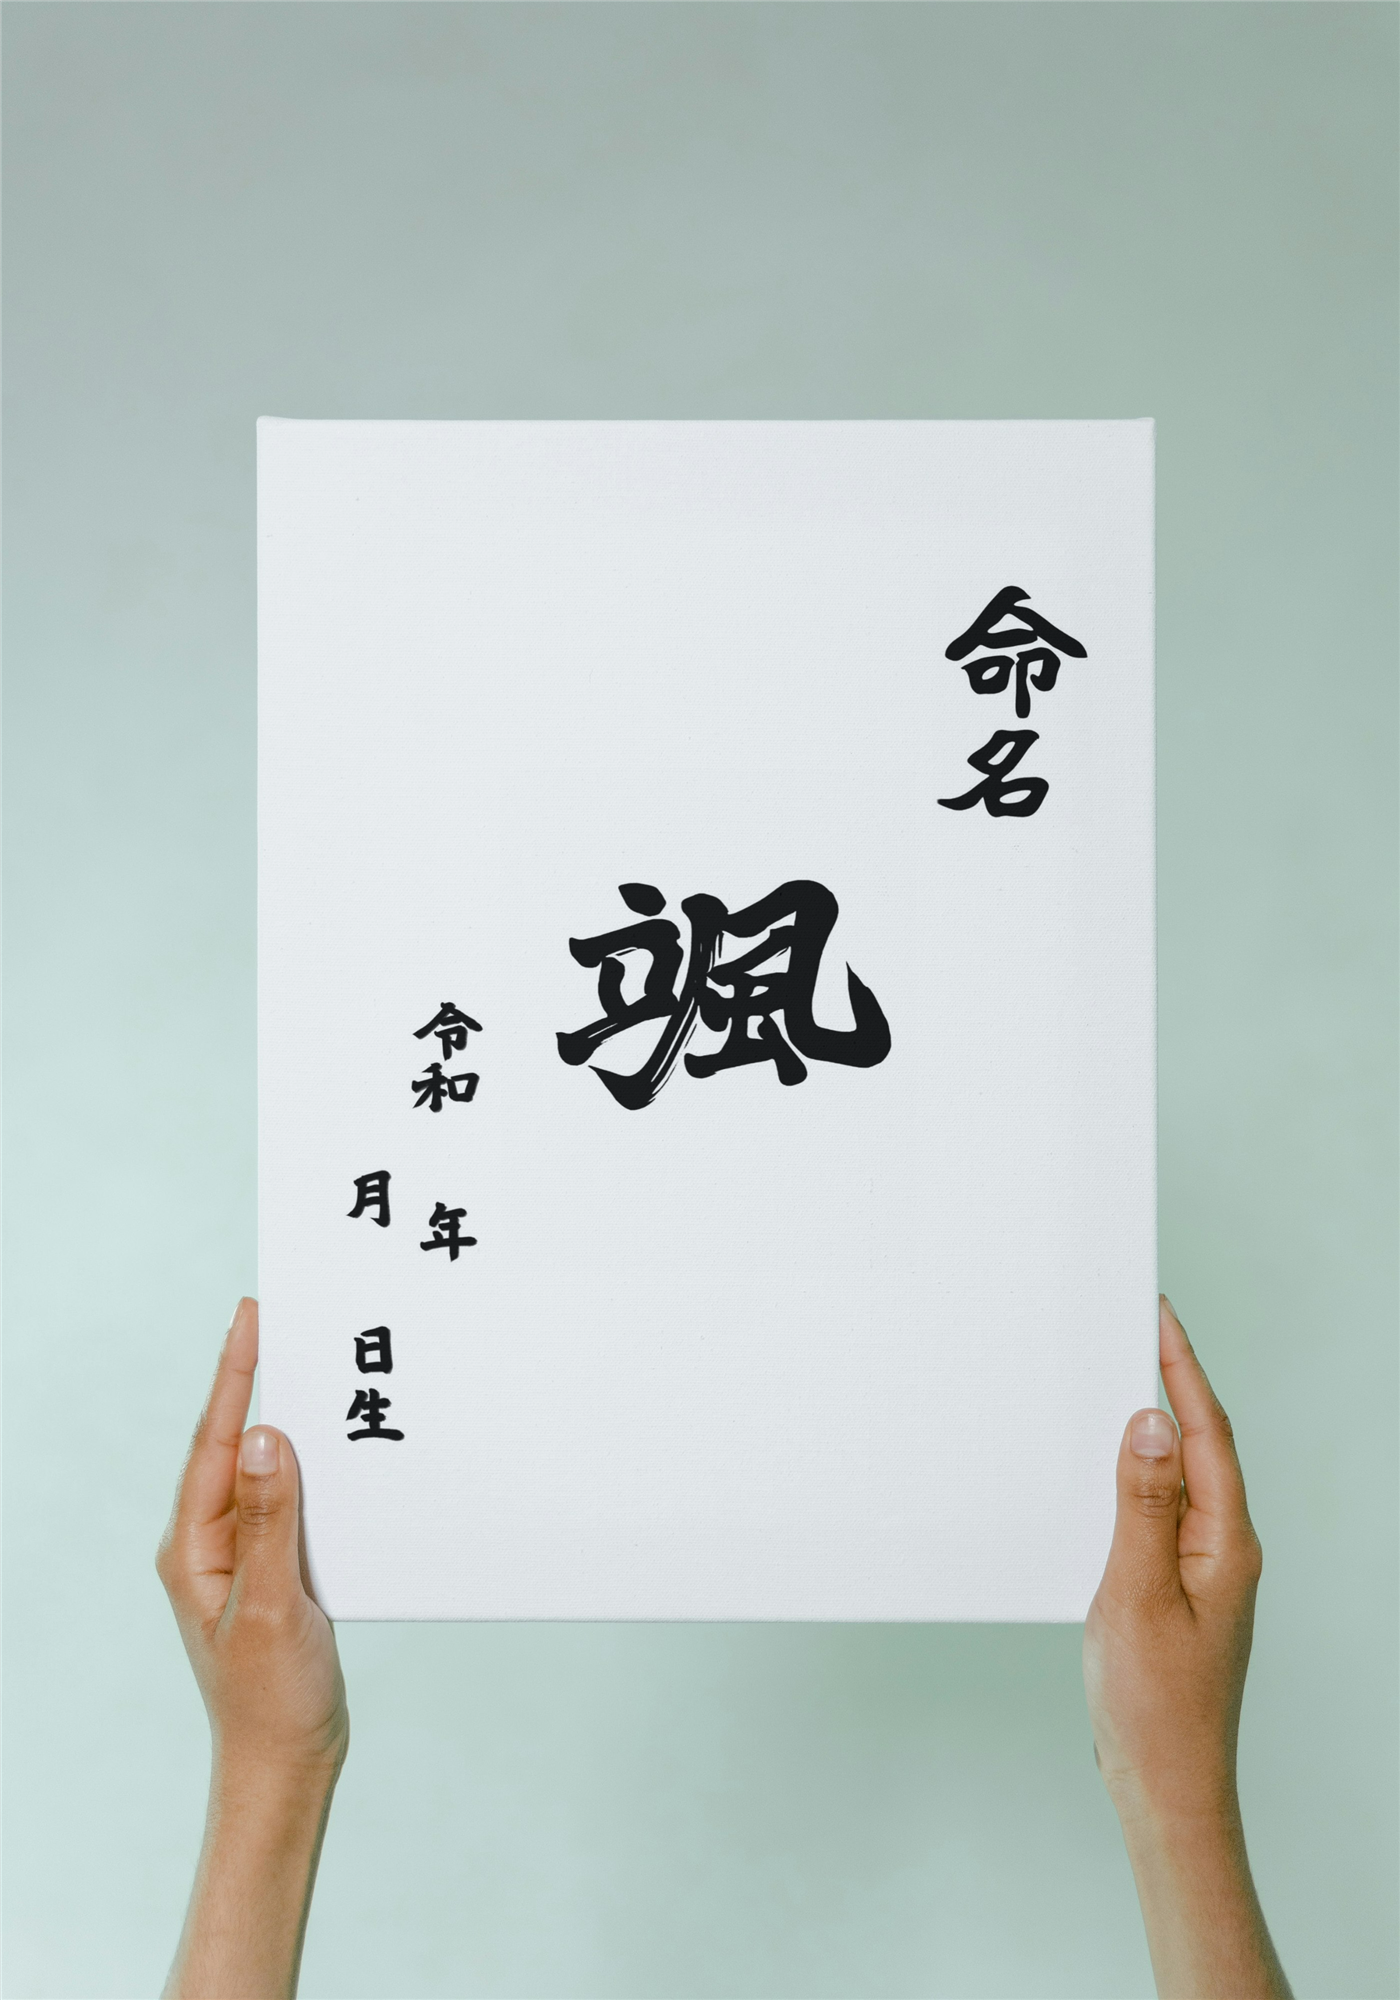 命名
颯
令和 年
月 日生